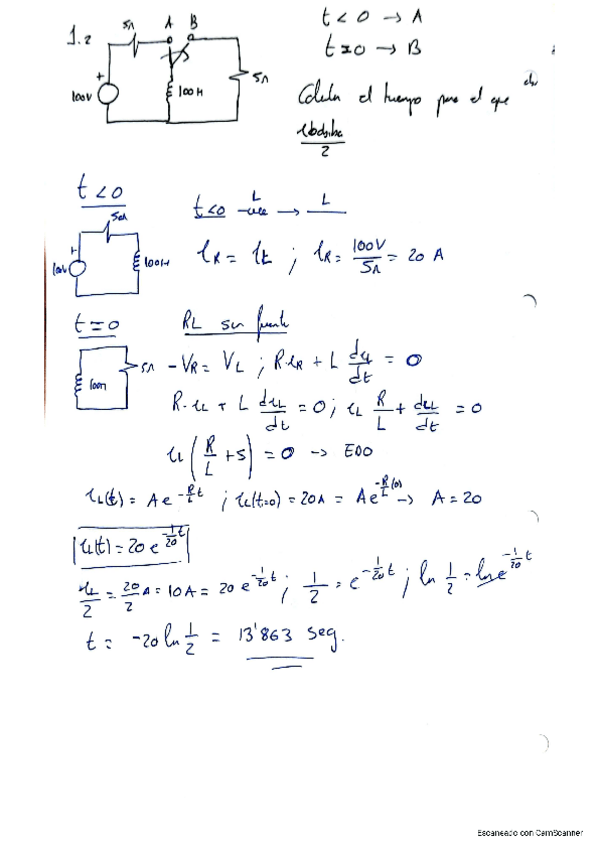 1.2
5Ω A B
100V
100H
5Ω
t<0 → A
t=0 → B
Calcula el tiempo para el que
2
t<0
5Ω
100V
100H
t<0 L → L
i_R = i_L ; i_R = 100V/5Ω = 20 A
t=0 RL sin fuente
100H
5Ω
-V_R = V_L ; R·i_R + L di_L/dt = 0
R·i_L + L di_L/dt = 0 ; i_L R/L + di_L/dt = 0
i_L (R/L + s) = 0 → EDO
i_L(t) = A e^(-R/L t) ; i_L(t=0) = 20A = A e^(-R/L (0)) → A = 20
i_L(t) = 20 e^(-1/20 t)
i_L/2 = 20/2 A = 10A = 20 e^(-1/20 t) ; 1/2 = e^(-1/20 t) ; ln 1/2 = ln e^(-1/20 t)
t = -20 ln 1/2 = 13'863 seg.
Escaneado con CamScanner